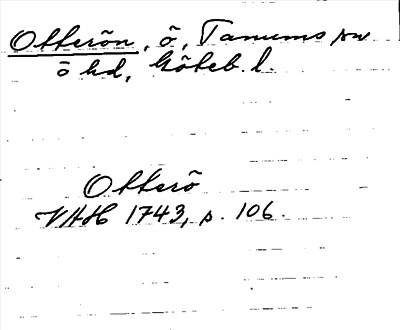 Otterön, ö, Tanums sn
ö hd, Göteb. l.
Otterö
VAH 1743, s. 106.